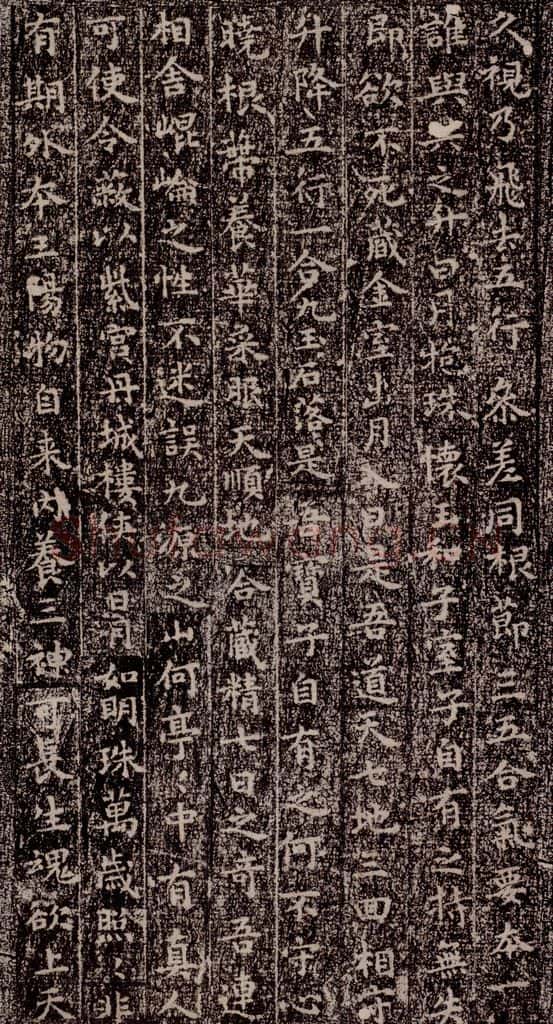 久視乃飛去五行參差同根節三五合氣要本一
誰與共之升日月抱珠懷玉和子室子自有之持無失
即欲不死藏金室出月入日是吾道天七地三回相守
升降五行一合九玉石落是吾寶子自有之何不守心
曉根蔕養華采服天順地合藏精七日之奇吾連
相舍崐崘之性不迷誤九源之山何亭〻中有真人
可使令蔽以紫宮丹城樓俠以日月如明珠萬歲照〻非
有期外本三陽物自来內養三神可長生魂欲上天